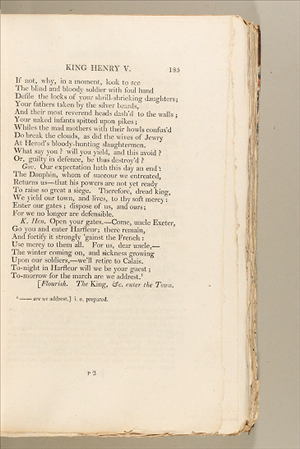 KING HENRY V. 185
If not, why, in a moment, look to see
The blind and bloody soldier with foul hand
Defile the locks of your shrill-shrieking daughters;
Your fathers taken by the silver beards,
And their most reverend heads dash'd to the walls;
Your naked infants spitted upon pikes;
Whiles the mad mothers with their howls confus'd
Do break the clouds, as did the wives of Jewry
At Herod's bloody-hunting slaughtermen.
What say you? will you yield, and this avoid?
Or, guilty in defence, be thus destroy'd?
Gov. Our expectation hath this day an end:
The Dauphin, whom of succour we entreated,
Returns us—that his powers are not yet ready
To raise so great a siege. Therefore, dread king,
We yield our town, and lives, to thy soft mercy:
Enter our gates; dispose of us, and ours;
For we no longer are defensible.
K. Hen. Open your gates.—Come, uncle Exeter,
Go you and enter Harfleur; there remain,
And fortify it strongly 'gainst the French:
Use mercy to them all. For us, dear uncle,—
The winter coming on, and sickness growing
Upon our soldiers,—we'll retire to Calais.
To-night in Harfleur will we be your guest;
To-morrow for the march are we addrest.¹
[Flourish. The King, &c. enter the Town.
¹ —— are we addrest.] i. e. prepared.